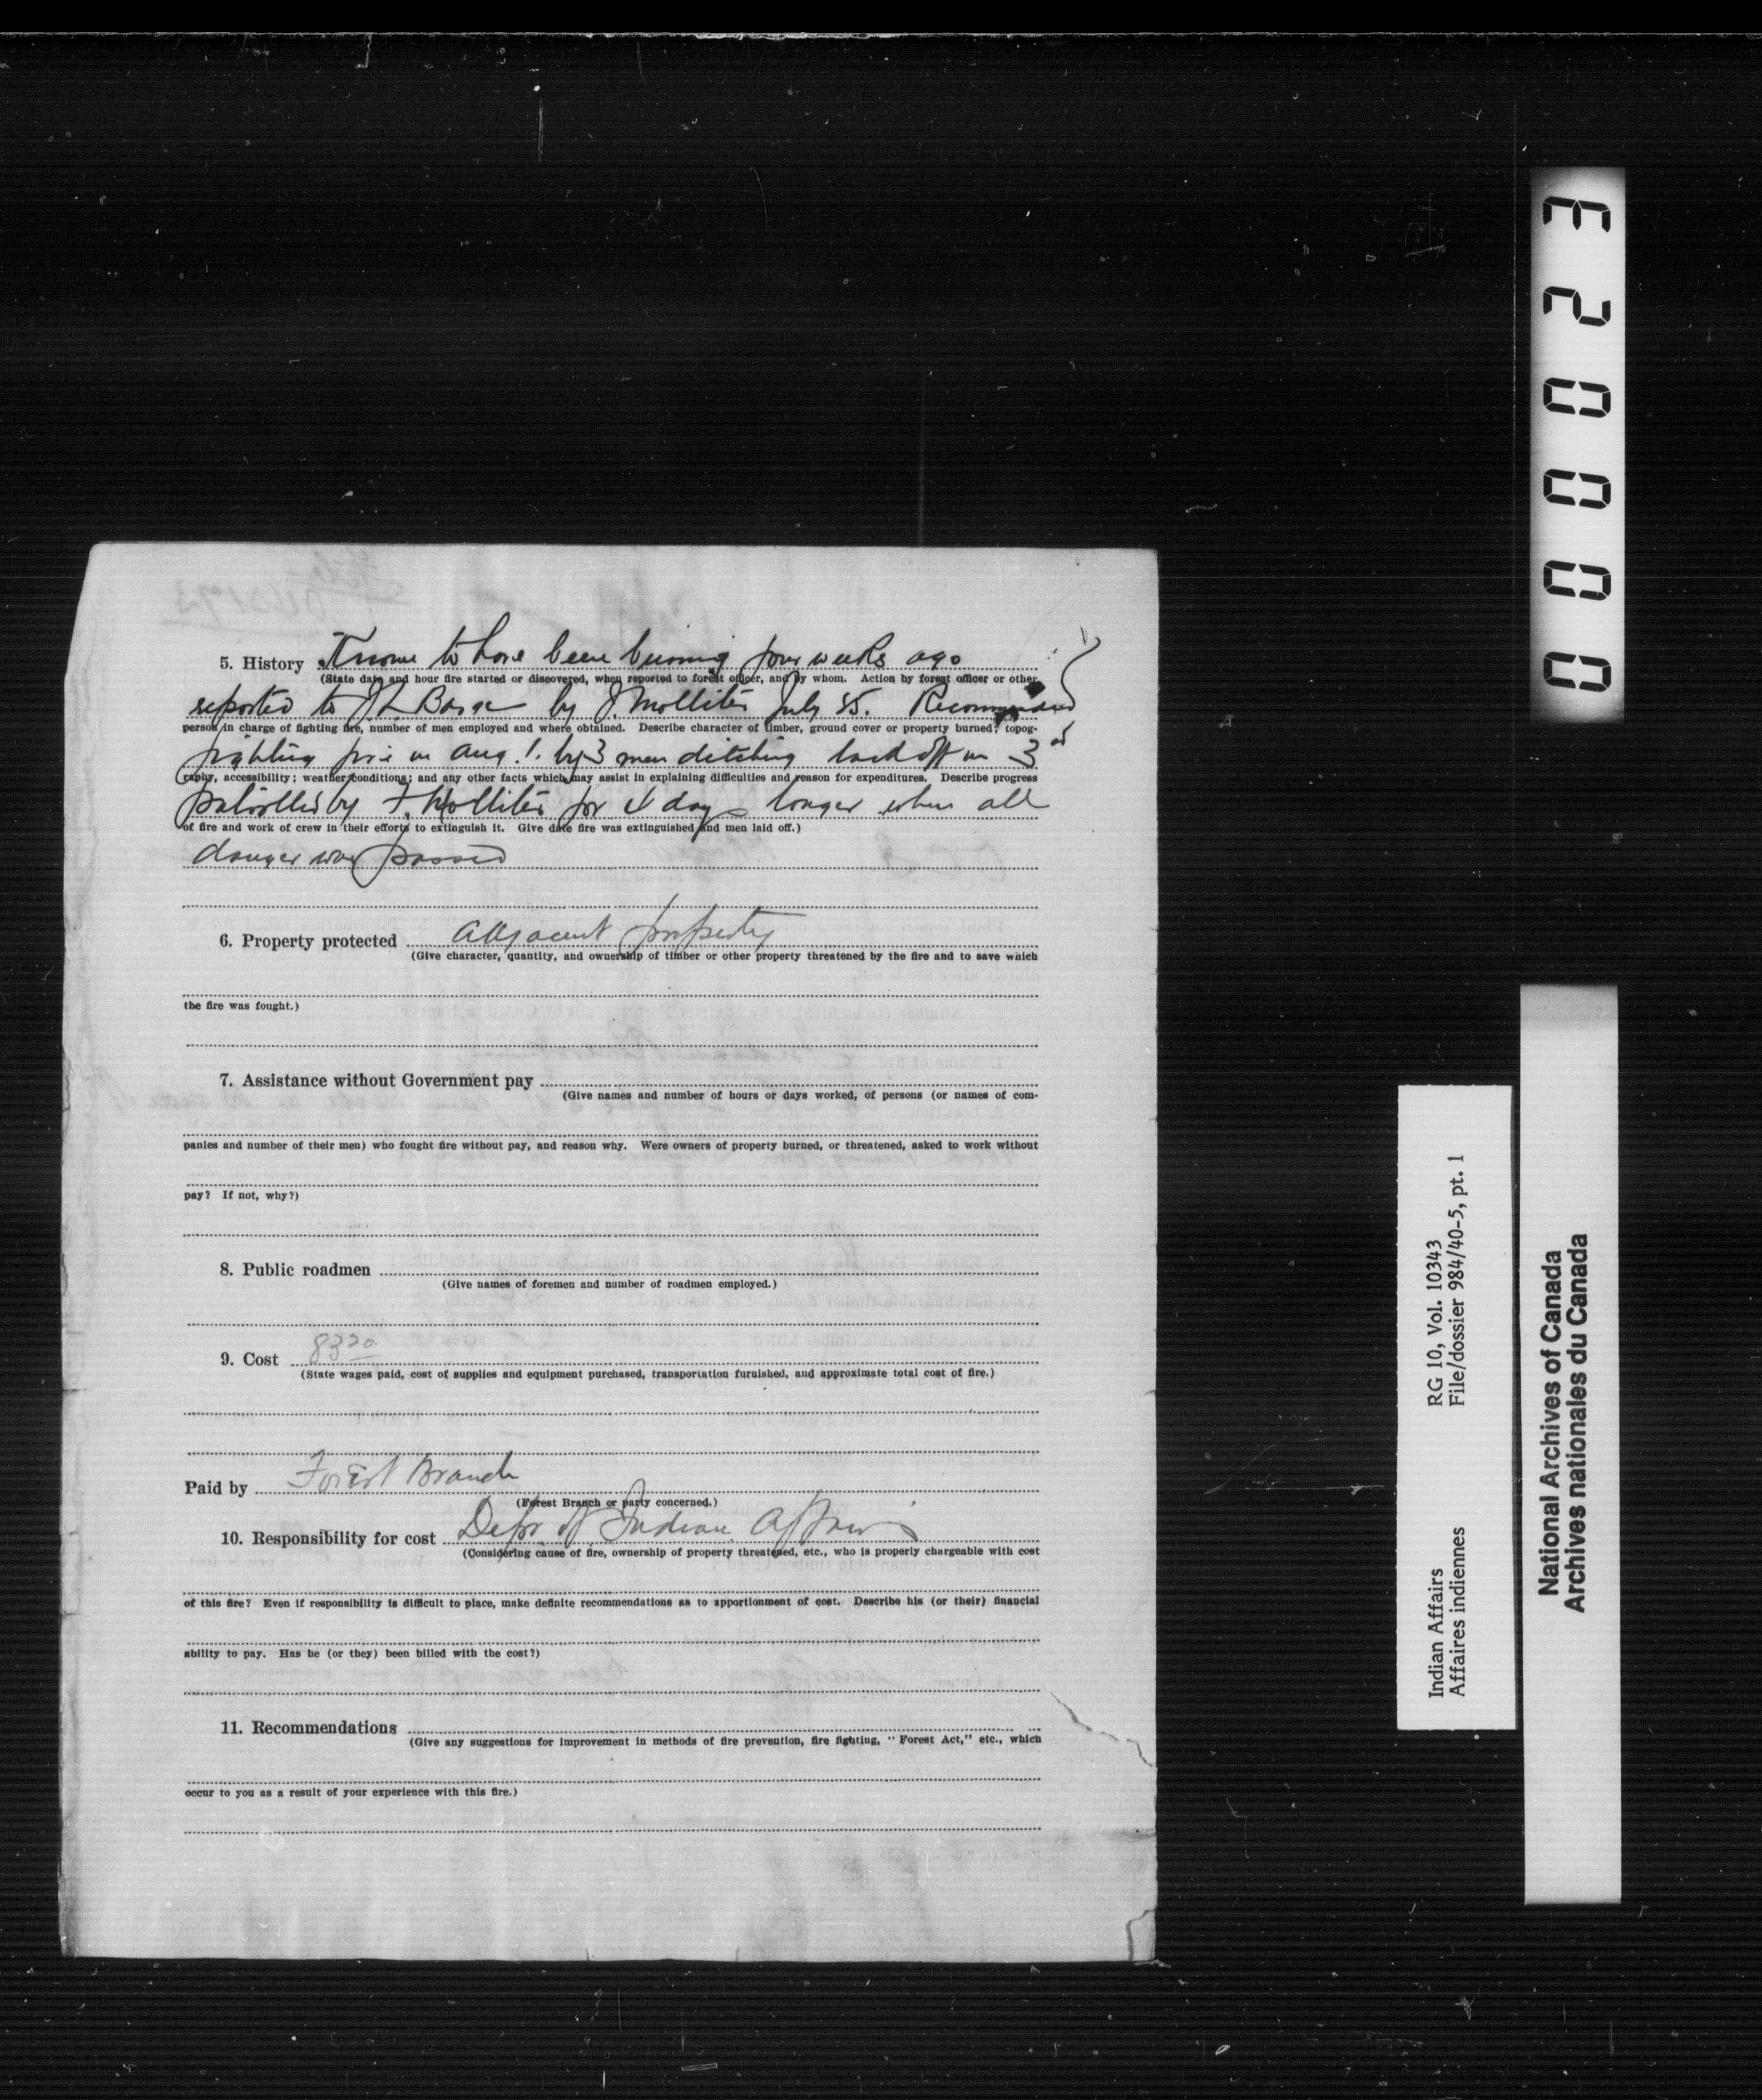 5. History Known to have been burning four weeks ago
(State date and hour fire started or discovered, when reported to forest officer, and by whom. Action by forest officer or other
reported to J. L. by J. Molliter July
person in charge of fighting fire, number of men employed and where obtained. Describe character of timber, ground cover or property burned; topog-
fighting fire on Aug. 1. by 3 men ditching laid off on 3rd
raphy, accessibility; weather conditions; and any other facts which may assist in explaining difficulties and reason for expenditures. Describe progress
patrolled by F. Molliter for 4 days longer when all
of fire and work of crew in their efforts to extinguish it. Give date fire was extinguished and men laid off.)
danger was passed
6. Property protected adjacent property
(Give character, quantity, and ownership of timber or other property threatened by the fire and to save which
the fire was fought.)
7. Assistance without Government pay
(Give names and number of hours or days worked, of persons (or names of com-
panies and number of their men) who fought fire without pay, and reason why. Were owners of property burned, or threatened, asked to work without
pay? If not, why?)
8. Public roadmen
(Give names of foremen and number of roadmen employed.)
9. Cost 83 20
(State wages paid, cost of supplies and equipment purchased, transportation furnished, and approximate total cost of fire.)
Paid by Forest Branch
(Forest Branch or party concerned.)
10. Responsibility for cost Dept. of Indian Affairs
(Considering cause of fire, ownership of property threatened, etc., who is properly chargeable with cost
of this fire? Even if responsibility is difficult to place, make definite recommendations as to apportionment of cost. Describe his (or their) financial
ability to pay. Has he (or they) been billed with the cost?)
11. Recommendations
(Give any suggestions for improvement in methods of fire prevention, fire fighting, "Forest Act," etc., which
occur to you as a result of your experience with this fire.)
000023
Indian Affairs RG 10, Vol. 10343
Affaires indiennes File/dossier 984/40-5, pt. 1
National Archives of Canada
Archives nationales du Canada